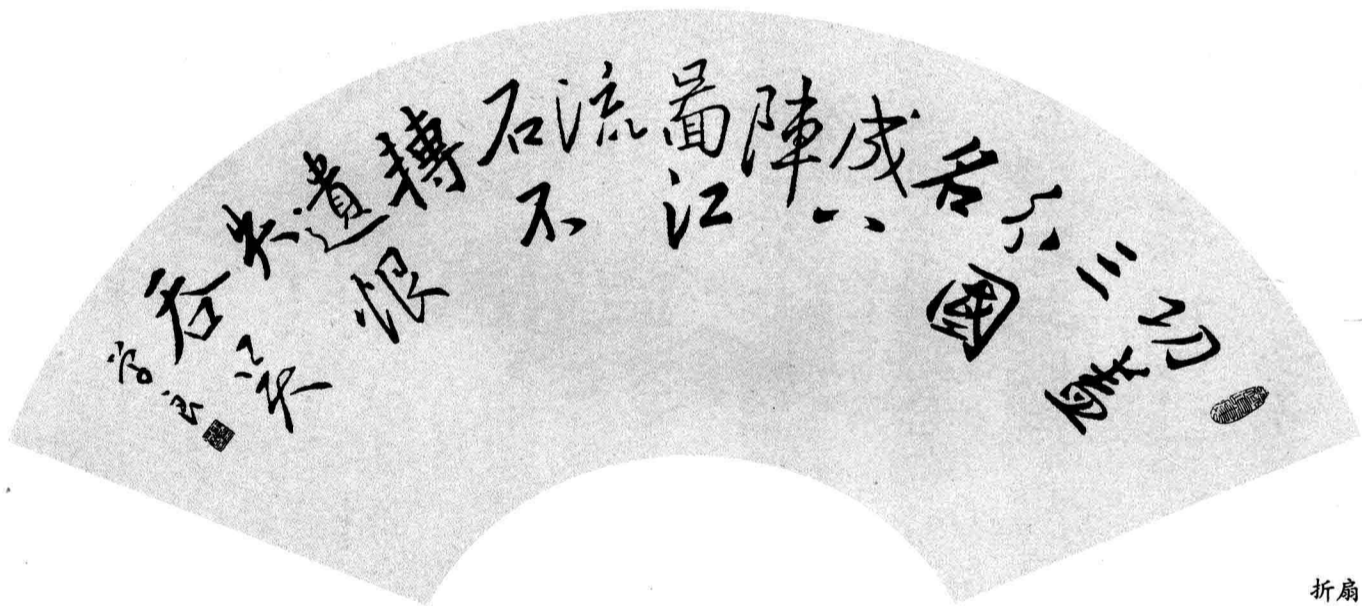 功盖
三
分國
名
成八
陣
圖江
流
石不
轉
遺恨
失
吞吴
折扇